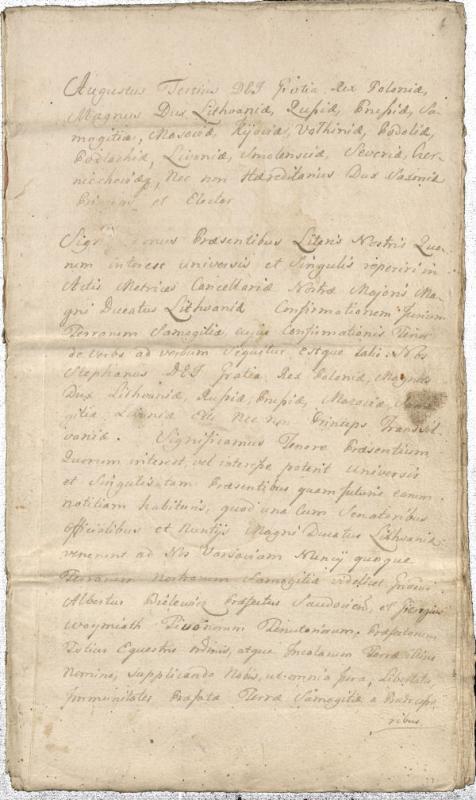 Augustus Tertius DEI Gratia Rex Poloniæ,
Magnus Dux Lithvaniæ, Rußiæ, Prußiæ, Sa-
mogitiæ, Masoviæ, Kijoviæ, Volhiniæ, Podoliæ,
Podlachiæ, Livoniæ, Smolensciæ, Severiæ, Czer-
niechoviæq, Nec non Hæreditarius Dux Saxoniæ
Princeps et Elector
Præsentibus Literis Nostris Quo-
rum interest universis et Singulis reperiri in
Actis Metrices Cancellariæ Nostræ Majoris Ma-
gni Ducatus Lithvaniæ Confirmationem Jurium
Terrarum Samogitiæ cujus Confirmationis Tenor
de Verbo ad verbum Sequitur, estque talis: Nos
Stephanus DEI Gratia Rex Poloniæ, Magnus
Dux Lithvaniæ, Rußiæ, Prußiæ, Mazoviæ, Samo-
gitiæ, Livoniæ Etc Nec non Princeps Transyl-
vaniæ. Significamus Tenore Præsentium
Quorum interest, vel interesse poterit Universis
et Singulis tam Præsentibus quam futuris earum
notitiam habituris, quod una Cum Senatoribus
Officialibus et Nuntijs Magni Ducatus Lithvaniæ
venerunt ad Nos Varsoviam Nuncij quoque
Terrarum Nostrarum Samogitiæ videlicet
Albertus Præfectus et Georgius
Woymiath Tivonorum Tenutariorum, Præfectorum
Totius Equestris ordinis, atque Incolarum Terræ illius
Nomine, supplicando Nobis, ut omnia Jura, Libertates
Immunitates Præfatæ Terræ Samogitiæ a Prædeceßo-
ribus